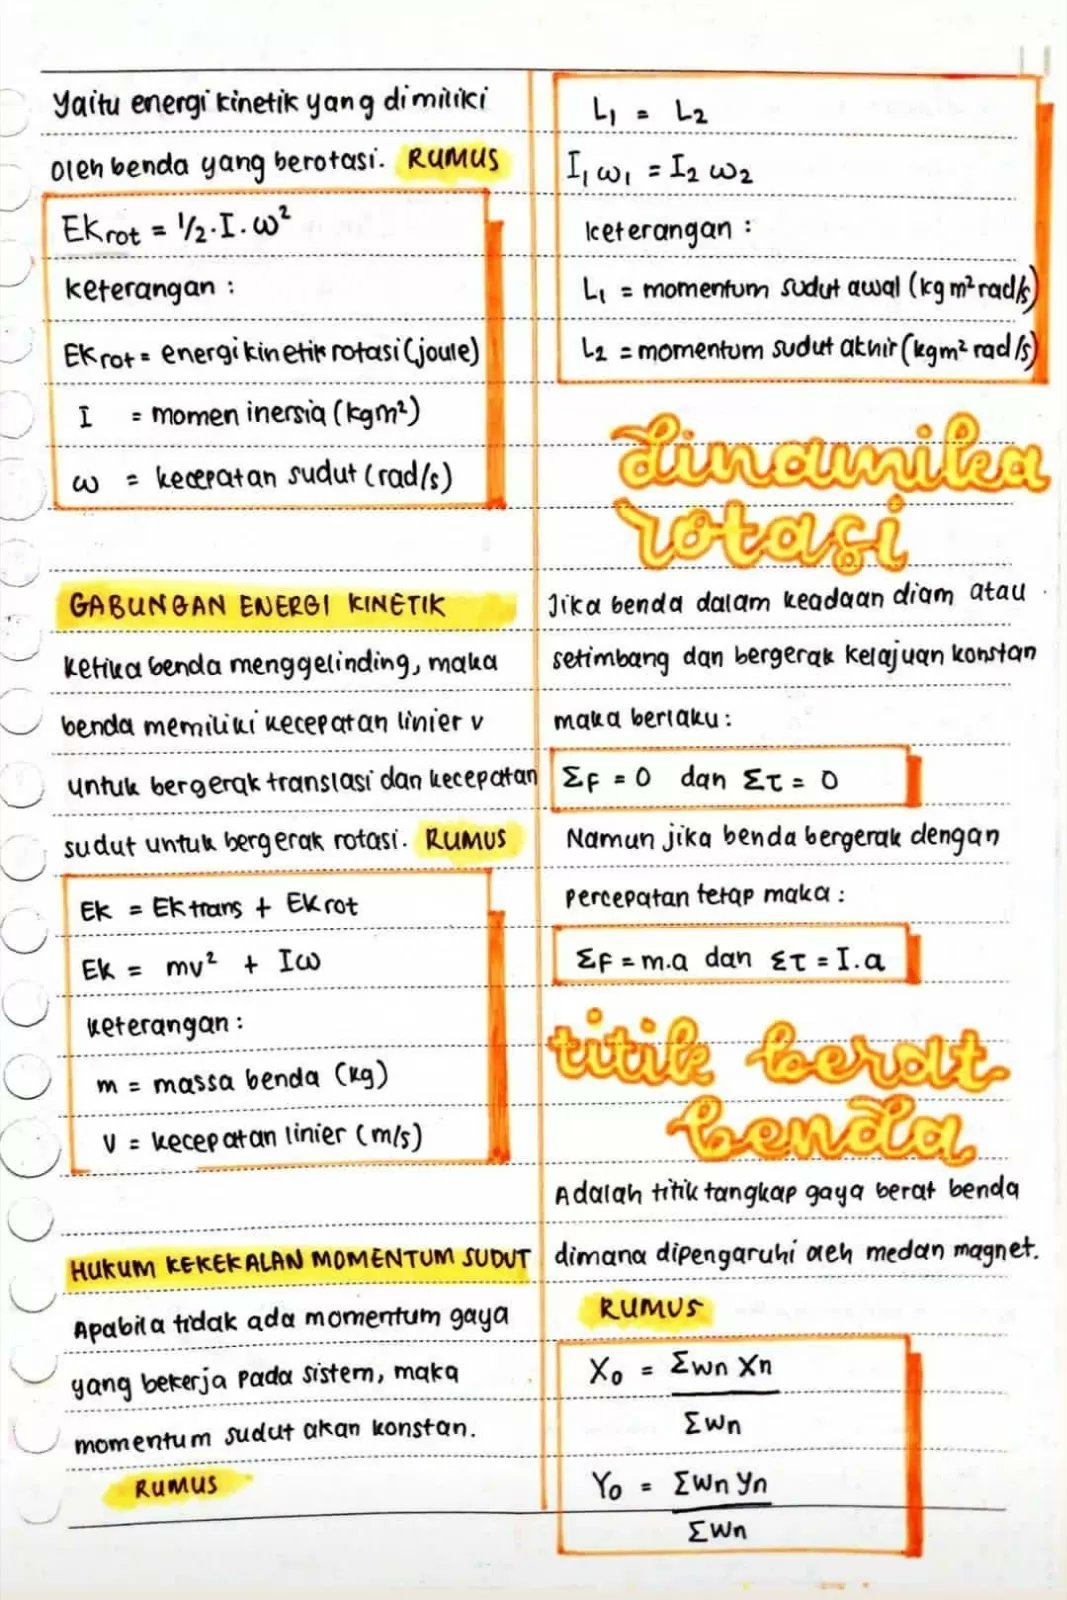 Yaitu energi kinetik yang dimiliki
oleh benda yang berotasi. RUMUS
EKrot = 1/2 . I . ω²
keterangan :
EKrot = energi kinetik rotasi (joule)
I = momen inersia (kgm²)
ω = kecepatan sudut (rad/s)
GABUNGAN ENERGI KINETIK
ketika benda menggelinding, maka
benda memiliki kecepatan linier v
untuk bergerak translasi dan kecepatan
sudut untuk bergerak rotasi. RUMUS
Ek = Ek trans + Ek rot
Ek = mv² + Iω
keterangan :
m = massa benda (kg)
v = kecepatan linier (m/s)
HUKUM KEKEKALAN MOMENTUM SUDUT
Apabila tidak ada momentum gaya
yang bekerja pada sistem, maka
momentum sudut akan konstan.
RUMUS
L₁ = L₂
I₁ ω₁ = I₂ ω₂
keterangan :
L₁ = momentum sudut awal (kg m² rad/s)
L₂ = momentum sudut akhir (kgm² rad/s)
dinamika
rotasi
Jika benda dalam keadaan diam atau
setimbang dan bergerak kelajuan konstan
maka berlaku :
ΣF = 0 dan Στ = 0
Namun jika benda bergerak dengan
percepatan tetap maka :
ΣF = m.a dan Στ = I.a
titik berat
benda
Adalah titik tangkap gaya berat benda
dimana dipengaruhi oleh medan magnet.
RUMUS
X₀ = Σwn Xn
Σwn
Y₀ = Σwn yn
Σwn